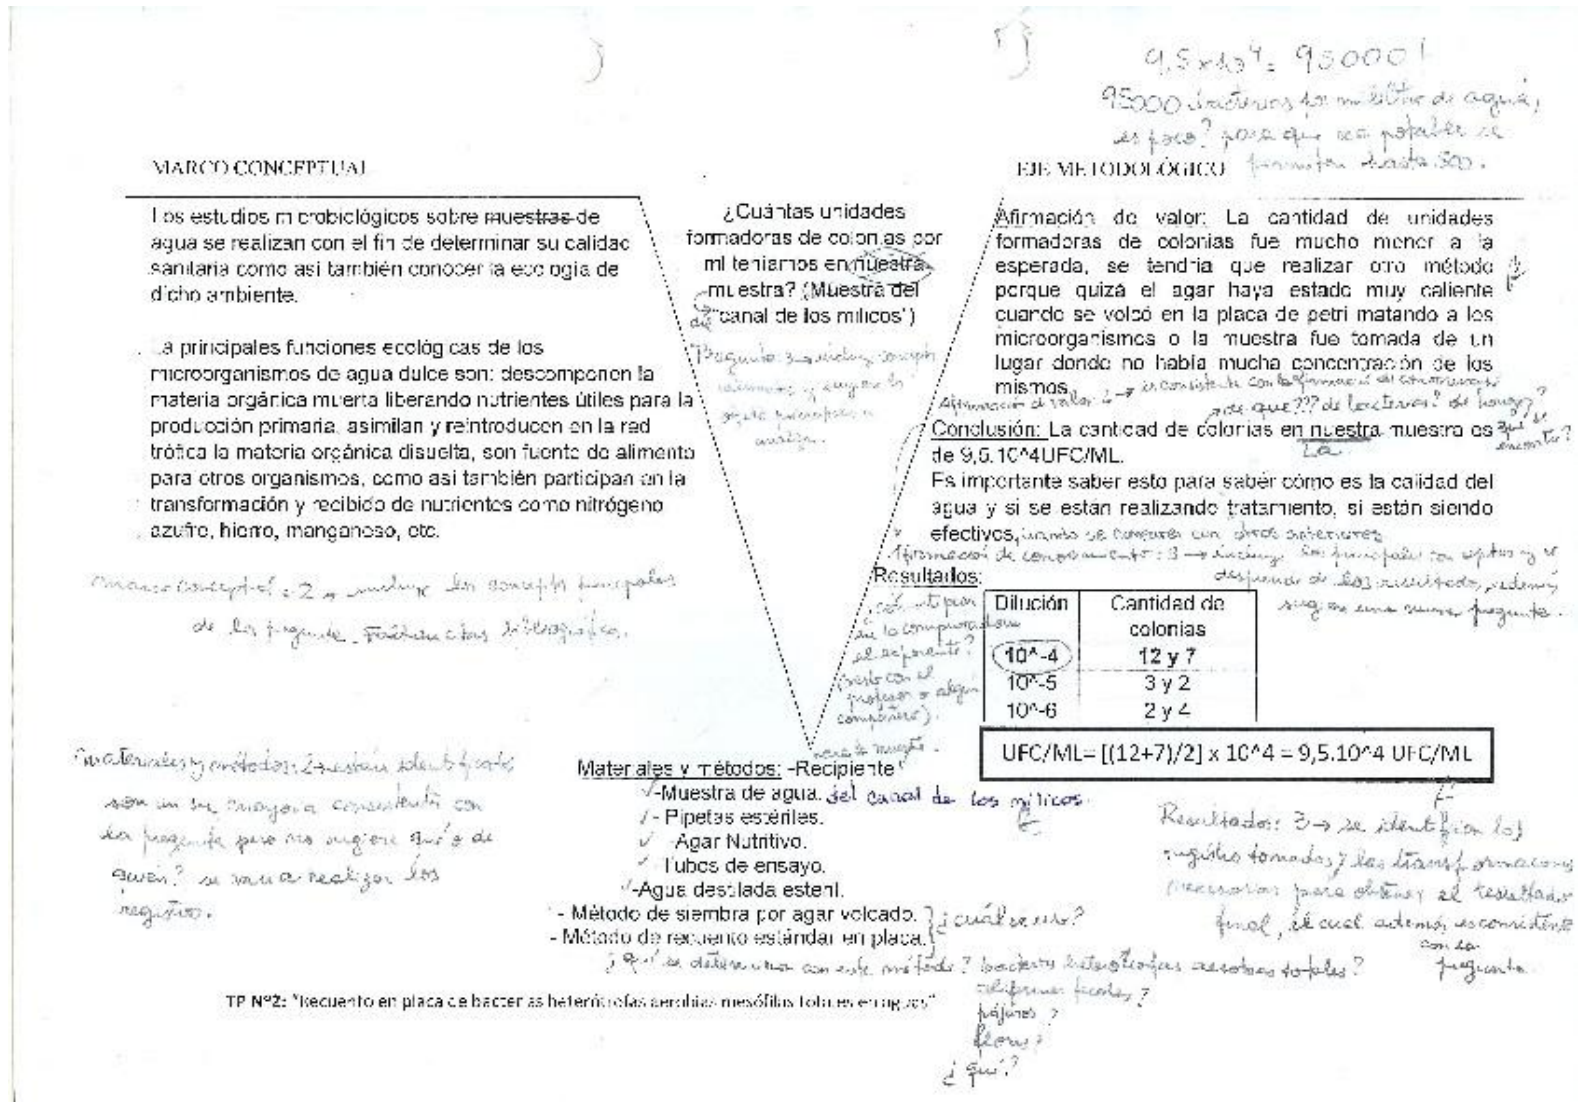 9,5 x 10⁴ = 95000!
95000 bacterias por mililitro de agua,
es poco? para que sea potable se
permiten hasta 500.
MARCO CONCEPTUAL
EJE METODOLÓGICO
Los estudios microbiológicos sobre muestras de
agua se realizan con el fin de determinar su calidad
sanitaria como asi también conocer la ecología de
dicho ambiente.
La principales funciones ecológicas de los
microorganismos de agua dulce son: descomponen la
materia orgánica muerta liberando nutrientes útiles para la
producción primaria, asimilan y reintroducen en la red
trófica la materia orgánica disuelta, son fuente de alimento
para otros organismos, como asi también participan en la
transformación y recibido de nutrientes como nitrógeno
azufre, hierro, manganeso, etc.
Marco conceptual: 2 → incluye los conceptos principales
de la pregunta. Faltan citas bibliográficas.
¿Cuántas unidades
formadoras de colonias por
ml teniamos en nuestra
muestra? (Muestra del
"canal de los milicos")
Pregunta: 3 → incluye conceptos
y sugiere los
objetos principales a
analizar.
Afirmación de valor: La cantidad de unidades
formadoras de colonias fue mucho menor a la
esperada, se tendria que realizar otro método
porque quizá el agar haya estado muy caliente
cuando se volcó en la placa de petri matando a los
microorganismos o la muestra fue tomada de un
lugar donde no había mucha concentración de los
mismos.
Afirmación de valor: 2 → es consistente con la afirmación de conocimiento
→ de que??? de bacterias? de hongos?
qué se
encontró?
Conclusión: La cantidad de colonias en nuestra muestra es
La
de 9,5.10^4UFC/ML.
Es importante saber esto para saber cómo es la calidad del
agua y si se están realizando tratamiento, si están siendo
efectivos, cuando se comparen con otros anteriores
Afirmación de conocimiento: 3 → incluye los principales conceptos y se
desprende de los resultados, además
sugiere una nueva pregunta.
Resultados:
en la computadora
el exponente?
(resto con el
profesor o algún
compañero).
Dilución Cantidad de
colonias
10^-4 12 y 7
10^-5 3 y 2
10^-6 2 y 4
UFC/ML= [(12+7)/2] x 10^4 = 9,5.10^4 UFC/ML
Resultados: 3 → se identifican los
registros tomados y las transformaciones
necesarias para obtener el resultado
final, el cual además es consistente
con la
pregunta
Materiales y métodos: 2 → están identificados
son en su mayoría consistentes con
la pregunta pero no sugiere qué o de
quién? se van a realizar los
registros.
Materiales y métodos: -Recipiente
-Muestra de agua. del canal de los milicos
- Pipetas estériles.
-Agar Nutritivo.
- Tubos de ensayo.
-Agua destilada esteril.
- Método de siembra por agar volcado.
- Método de recuento estándar en placa.
¿cuál es esto?
¿Qué se determina con este método? bacterias heterotrofas aerobias totales?
coliformes fecales?
pájaros?
flores?
¿qué?
TP Nº2: "Recuento en placa de bacterias heterótrofas aerobias mesófilas totales en aguas"